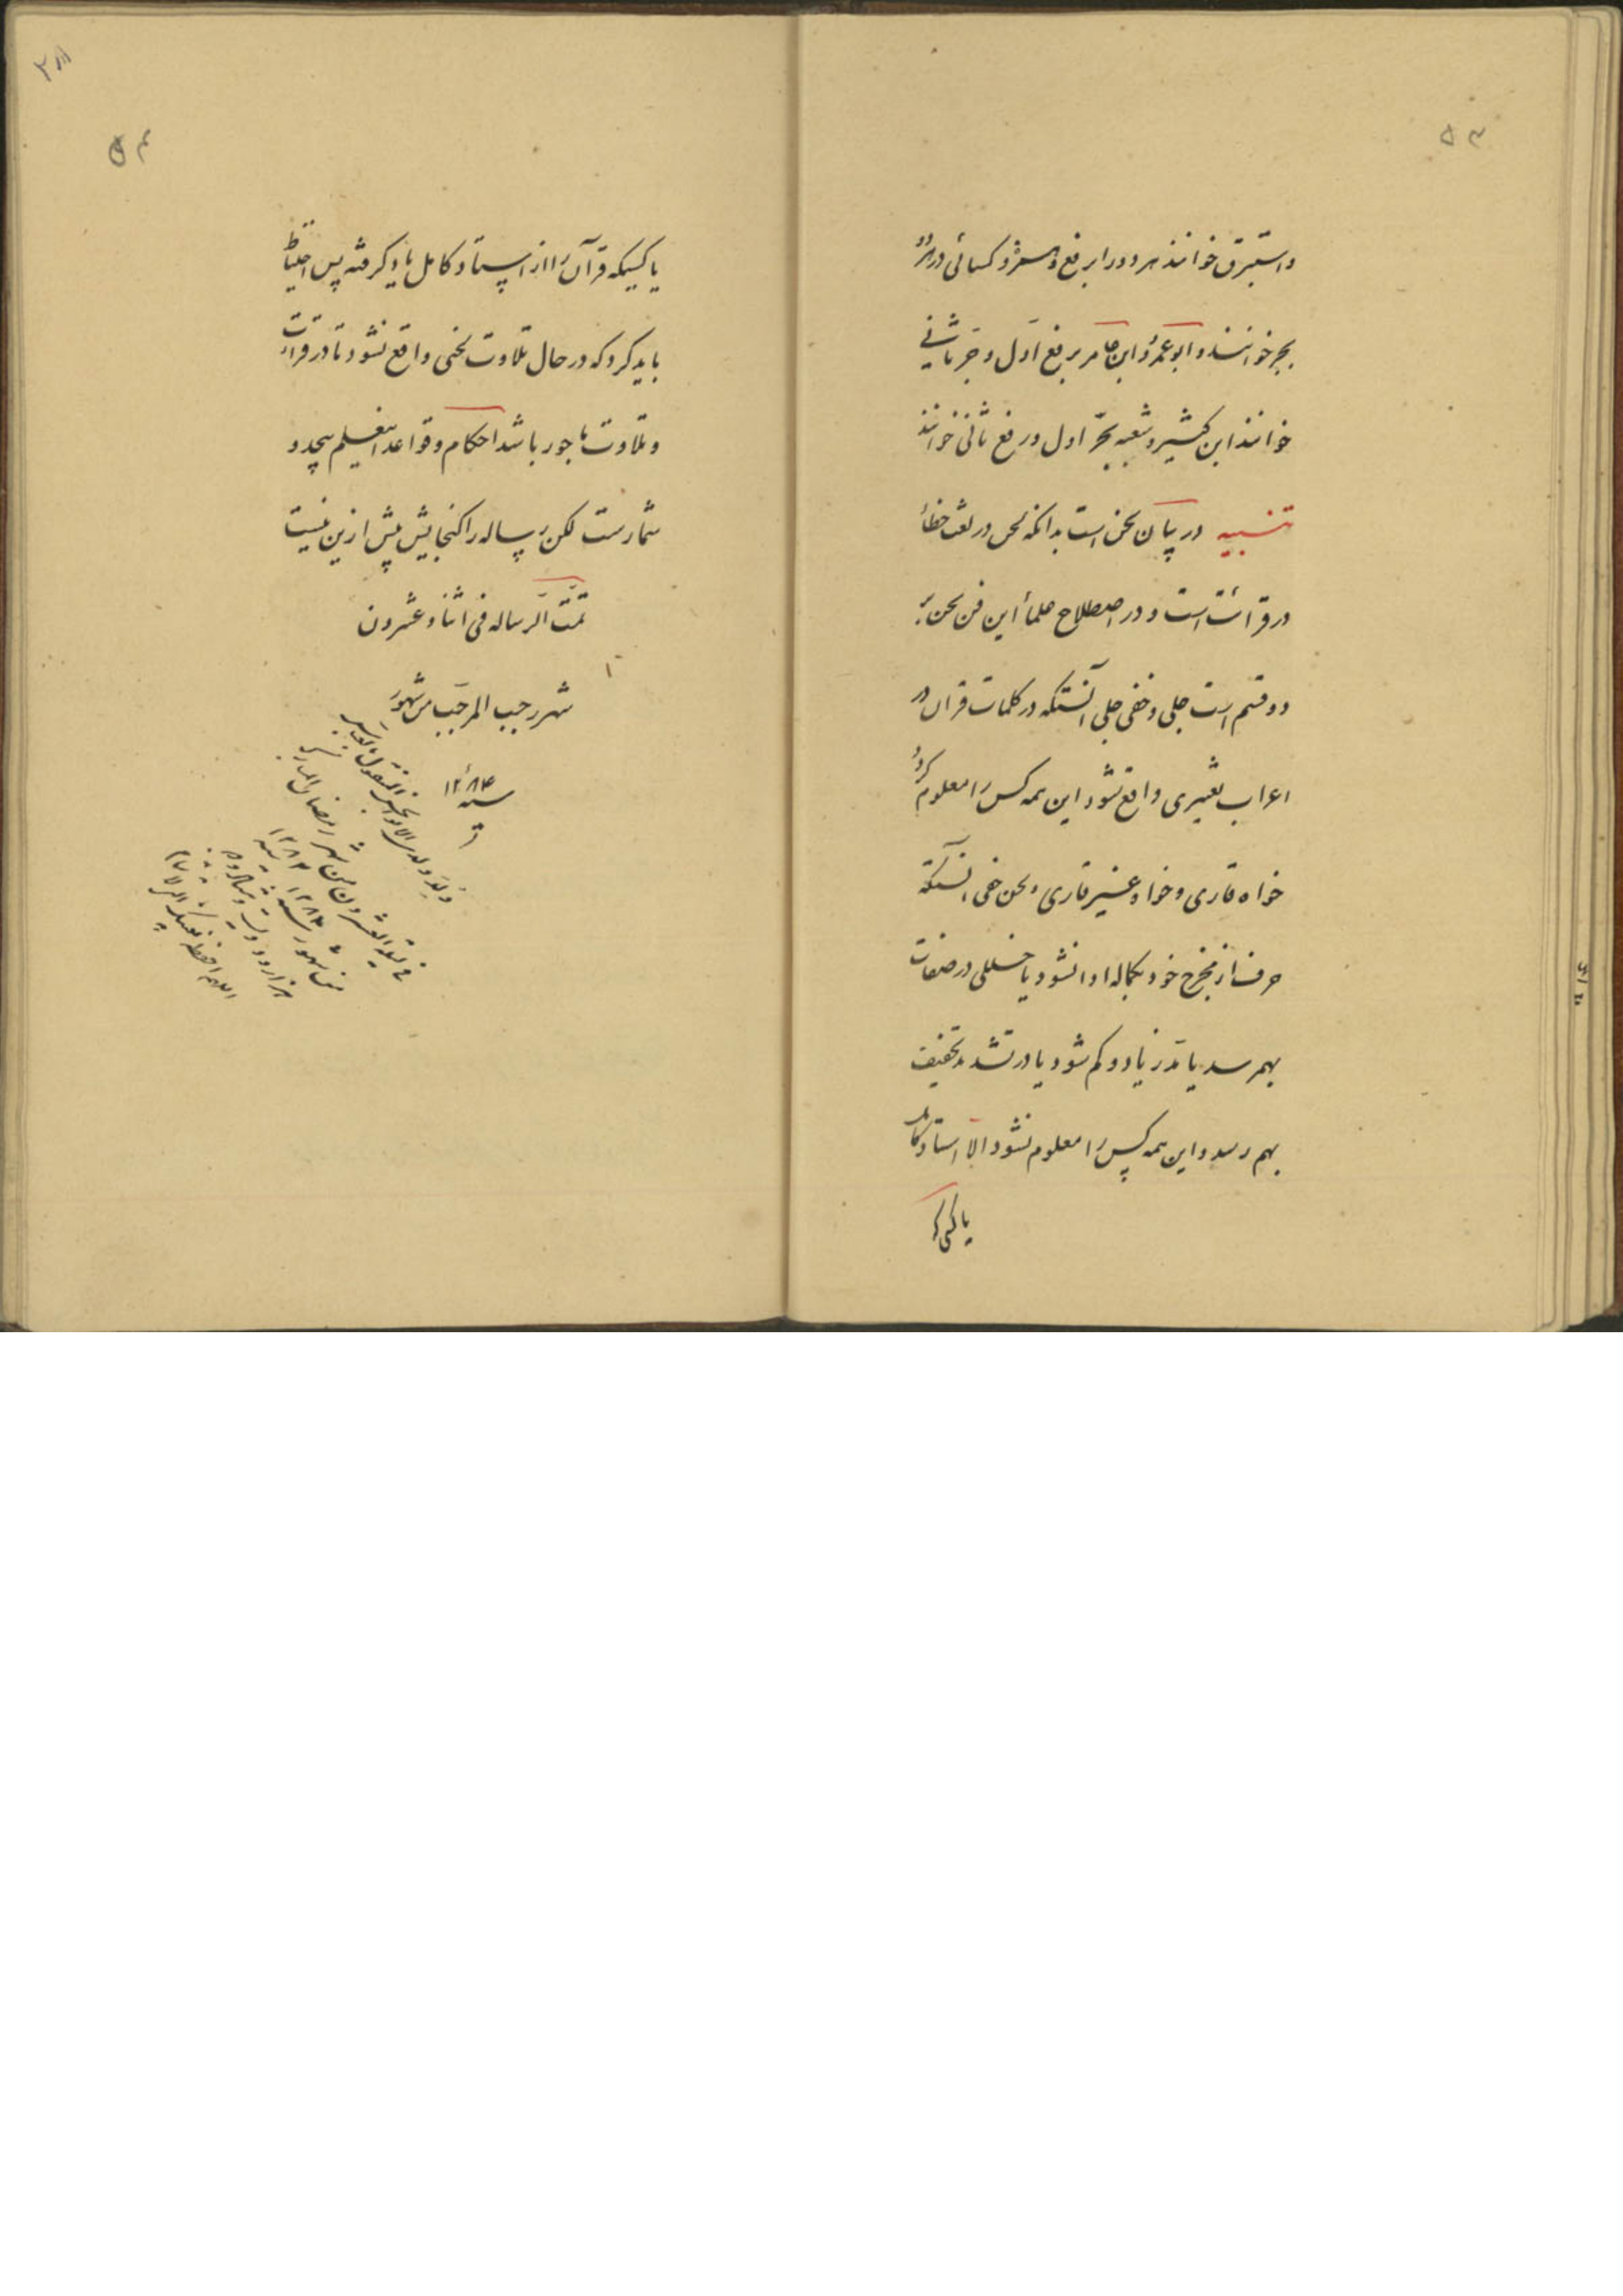 ۵۳
واستبرق خوانند هر دو را برفع و حمزه و کسائی در هر دو
بجر خوانند و ابو عمرو و ابن عامر برفع اول و جر ثانی
خوانند ابن کثیر و شعبه بجرّ اول و رفع ثانی خوانند
تنبیه در بیان لحن است بدانکه لحن در لغت خطأ
در قرائت است و در اصطلاح علمأ این فن لحن بر
دو قسم است جلی و خفی جلی آنستکه در کلمات قرآن و در
اعراب تغییری واقع شود این همه کس را معلوم گردد
خواه قاری و خواه غیر قاری و لحن خفی آنستکه
حرف از مخرج خود بکماله ادا نشود یا خللی در صفات
بهم رسد یا مدّ زیاد و کم شود یا در تشدید تخفیف
بهم رسد و این همه کس را معلوم نشود الا استاد کامل
یا کسی که
۵۴
یا کسیکه قرآن را از استاد کامل یاد گرفته پس احتیاط
باید کرد که در حال تلاوت لحنی واقع نشود تا در قرائت
و تلاوت ماجور باشد احکام و قواعد اینعلم بیحد و
شمارست لکن رساله را گنجایش بیش ازین نیست
تمّت الرساله فی اثنا و عشرون
شهر رجب المرجّب من شهور
سنه ۱۲۸۴
فی لیلة العشرون من شهر رمضان المبارک
من شهور سنه ۱۲۸۳
هزار و دویست و هشتاد و سه
اللهم احفظ